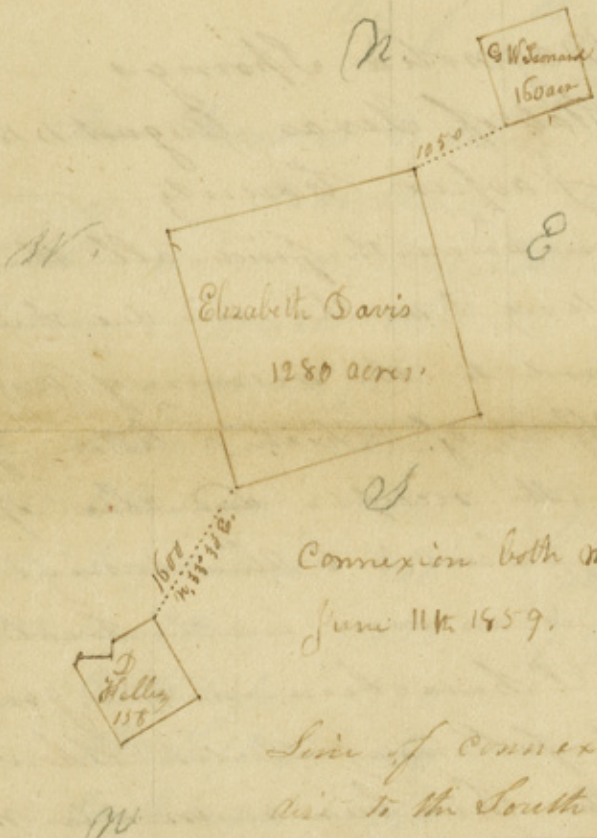 N
G W Leonard
160 acr
1050
W
E
Elizabeth Davis
1280 acres.
S
1600
Connexion both
June 11th 1859.
D
158
Line of connex
to the South